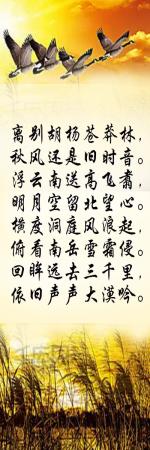 离别胡杨苍莽林，
秋风还是旧时音。
浮云南送高飞翥，
明月空留北望心。
横度洞庭风浪起，
俯看南岳雪霜侵。
回眸远去三千里，
依旧声声大漠吟。